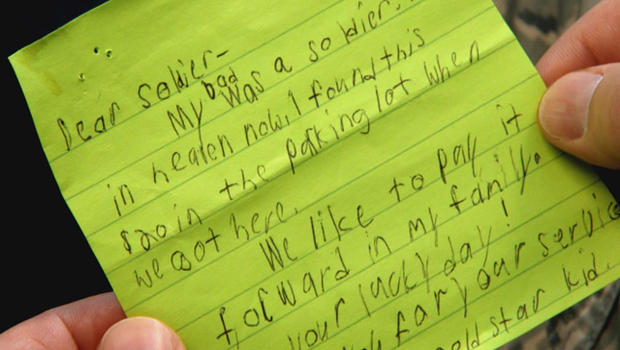 Dear soldier-
My dad was a soldier.
in heaven now. I found this
$20 in the parking lot when
we got here.
We like to pay it
forward in my family.
your lucky day!
for your service
star kid.